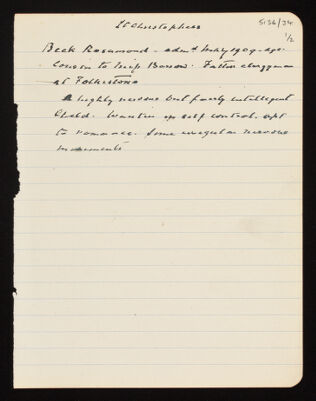 St Christophers
5136/34
1/2
Beck Rosamond - adm d age.
Cousin to Miss Barrow. Father clergyman
at Folkestone
A highly nervous but fairly intelligent
Child. Wanting in self control. apt
to romance. Some irregular nervous
movements